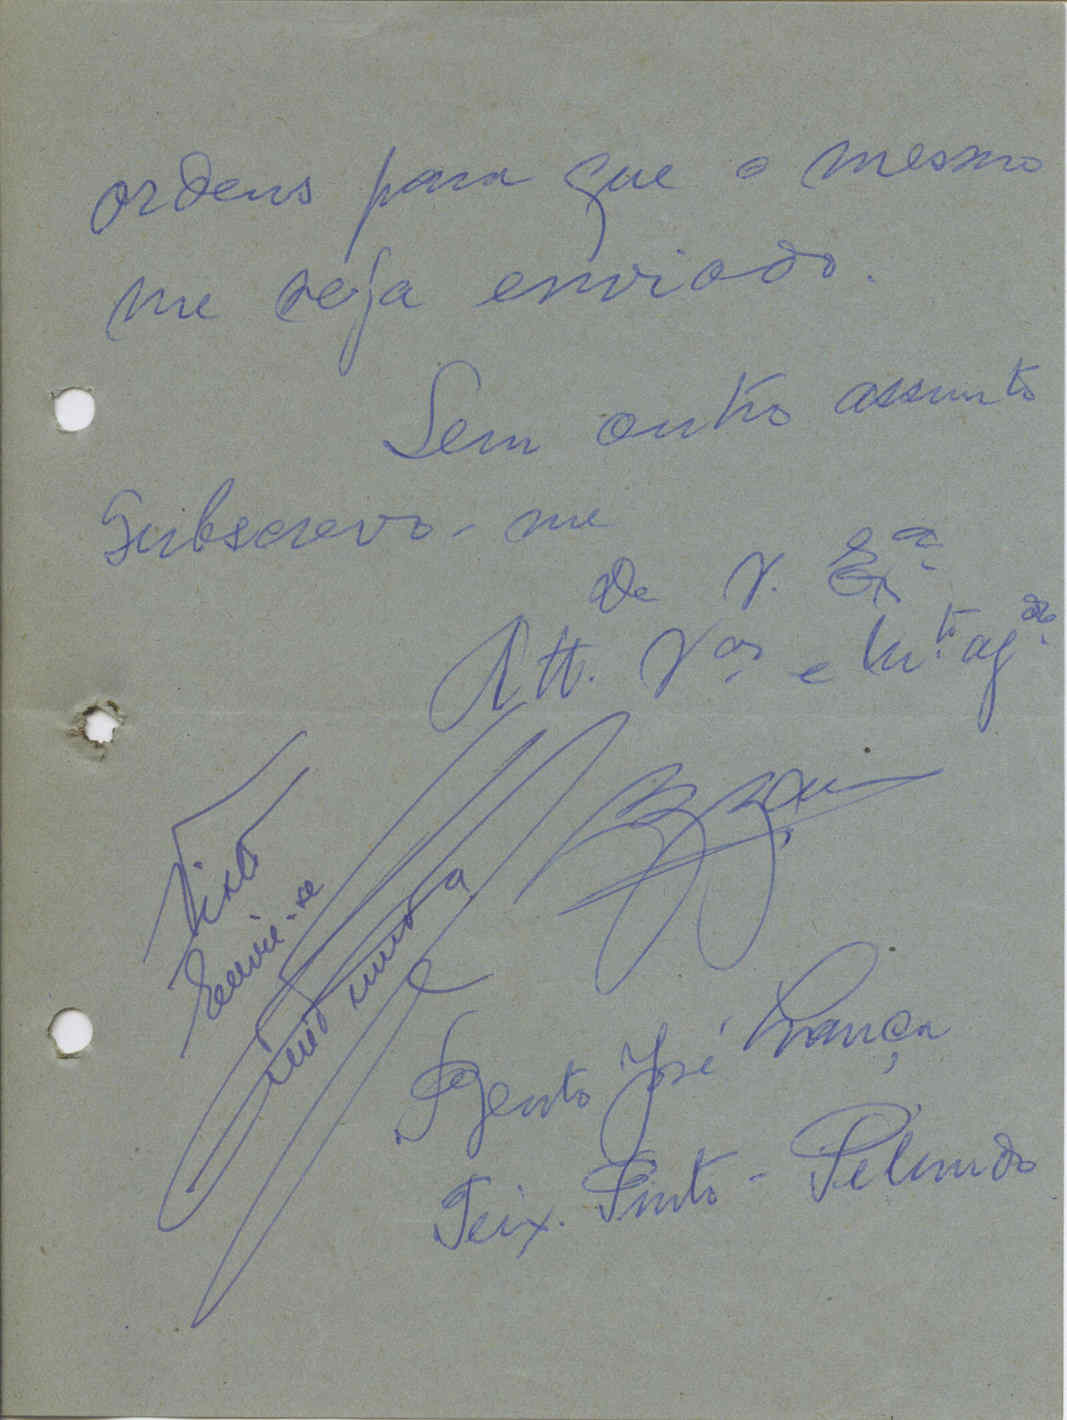 ordens para que o mesmo
me seja enviado.
Sem outro assunto
Subscrevo-me
De V. Exª
Att. Vor e Mtº. agdo.
Visto
Envie-se
Bento José França
Teix. Pinto - Pelundo